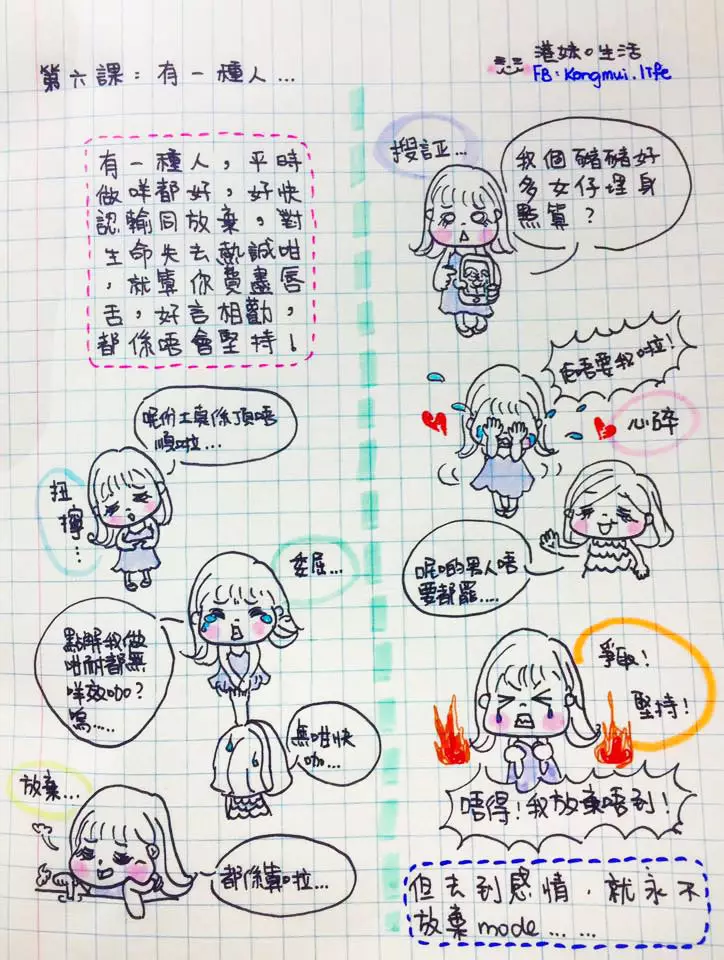 第六課：有一種人...
港妹。生活
FB: Kongmui.life
有一種人，平時
做咩都好，好快
認輸同放棄，對
生命失去熱誠咁
，就算你費盡唇
舌，好言相勸，
都係唔會堅持！
呢份工真係頂唔
順啦...
扭
擰...
委屈...
點解我做
咁耐都無
咩效㗎？
嗚.....
無咁快
㗎...
放棄...
都係算啦...
搜証...
我個豬豬好
多女仔埋身
點算？
佢唔要我啦！
心碎
呢啲男人唔
要都罷....
爭取！
堅持！
唔得！我放棄唔到！
但去到感情，就永不
放棄mode... ...